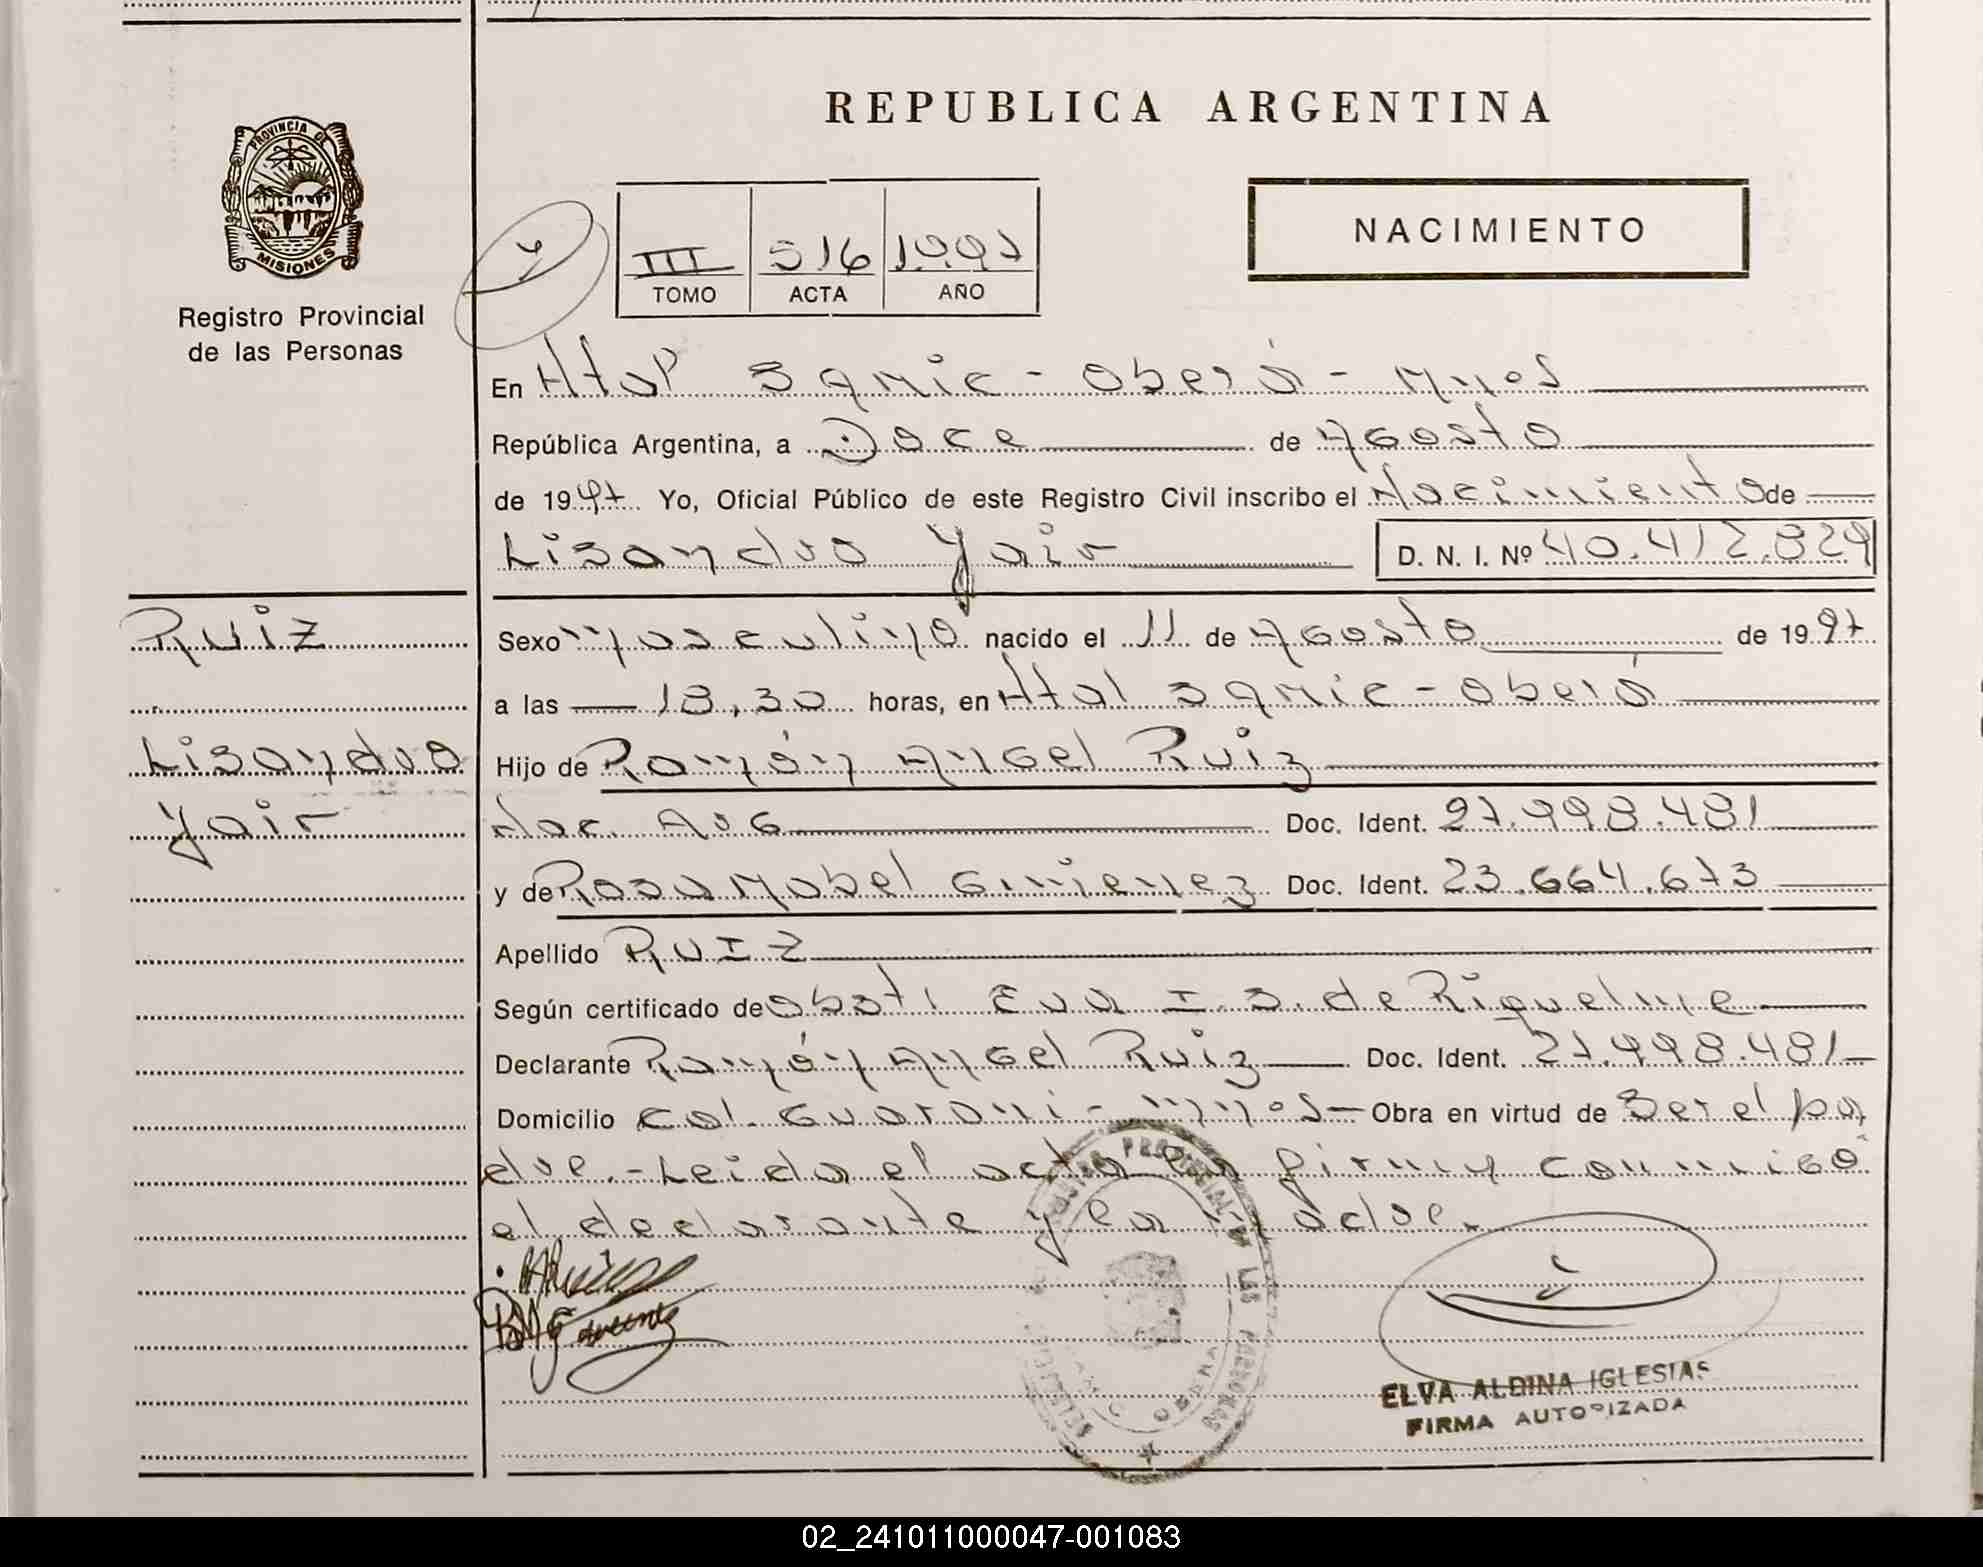 REPUBLICA ARGENTINA
PROVINCIA DE
MISIONES
Registro Provincial
de las Personas
III 516 1997
TOMO ACTA AÑO
NACIMIENTO
En Htal Samic - Oberá - Mnes
República Argentina, a Doce de Agosto
de 1997 Yo, Oficial Público de este Registro Civil inscribo el Nacimiento de
Lisandro Yair D. N. I. Nº 40.412.829
Ruiz
Lisandro
Yair
Sexo masculino nacido el 11 de Agosto de 1997
a las 18,30 horas, en Htal Samic - Oberá
Hijo de Ramón Angel Ruiz
Nac. Arg Doc. Ident. 27.998.481
y de Rosa Mabel Gimenez Doc. Ident. 23.664.673
Apellido RUIZ
Según certificado de obst. Eva I. S. de Riquelme
Declarante Ramón Angel Ruiz Doc. Ident. 27.998.481
Domicilio Col. Guarani - mnes Obra en virtud de Ser el pa
dre.- Leida el acta la firman conmigo
el declarante y la madre.
REGISTRO PROVINCIAL DE LAS PERSONAS
OBERA
ELVA ALDINA IGLESIAS
FIRMA AUTORIZADA
02_241011000047-001083